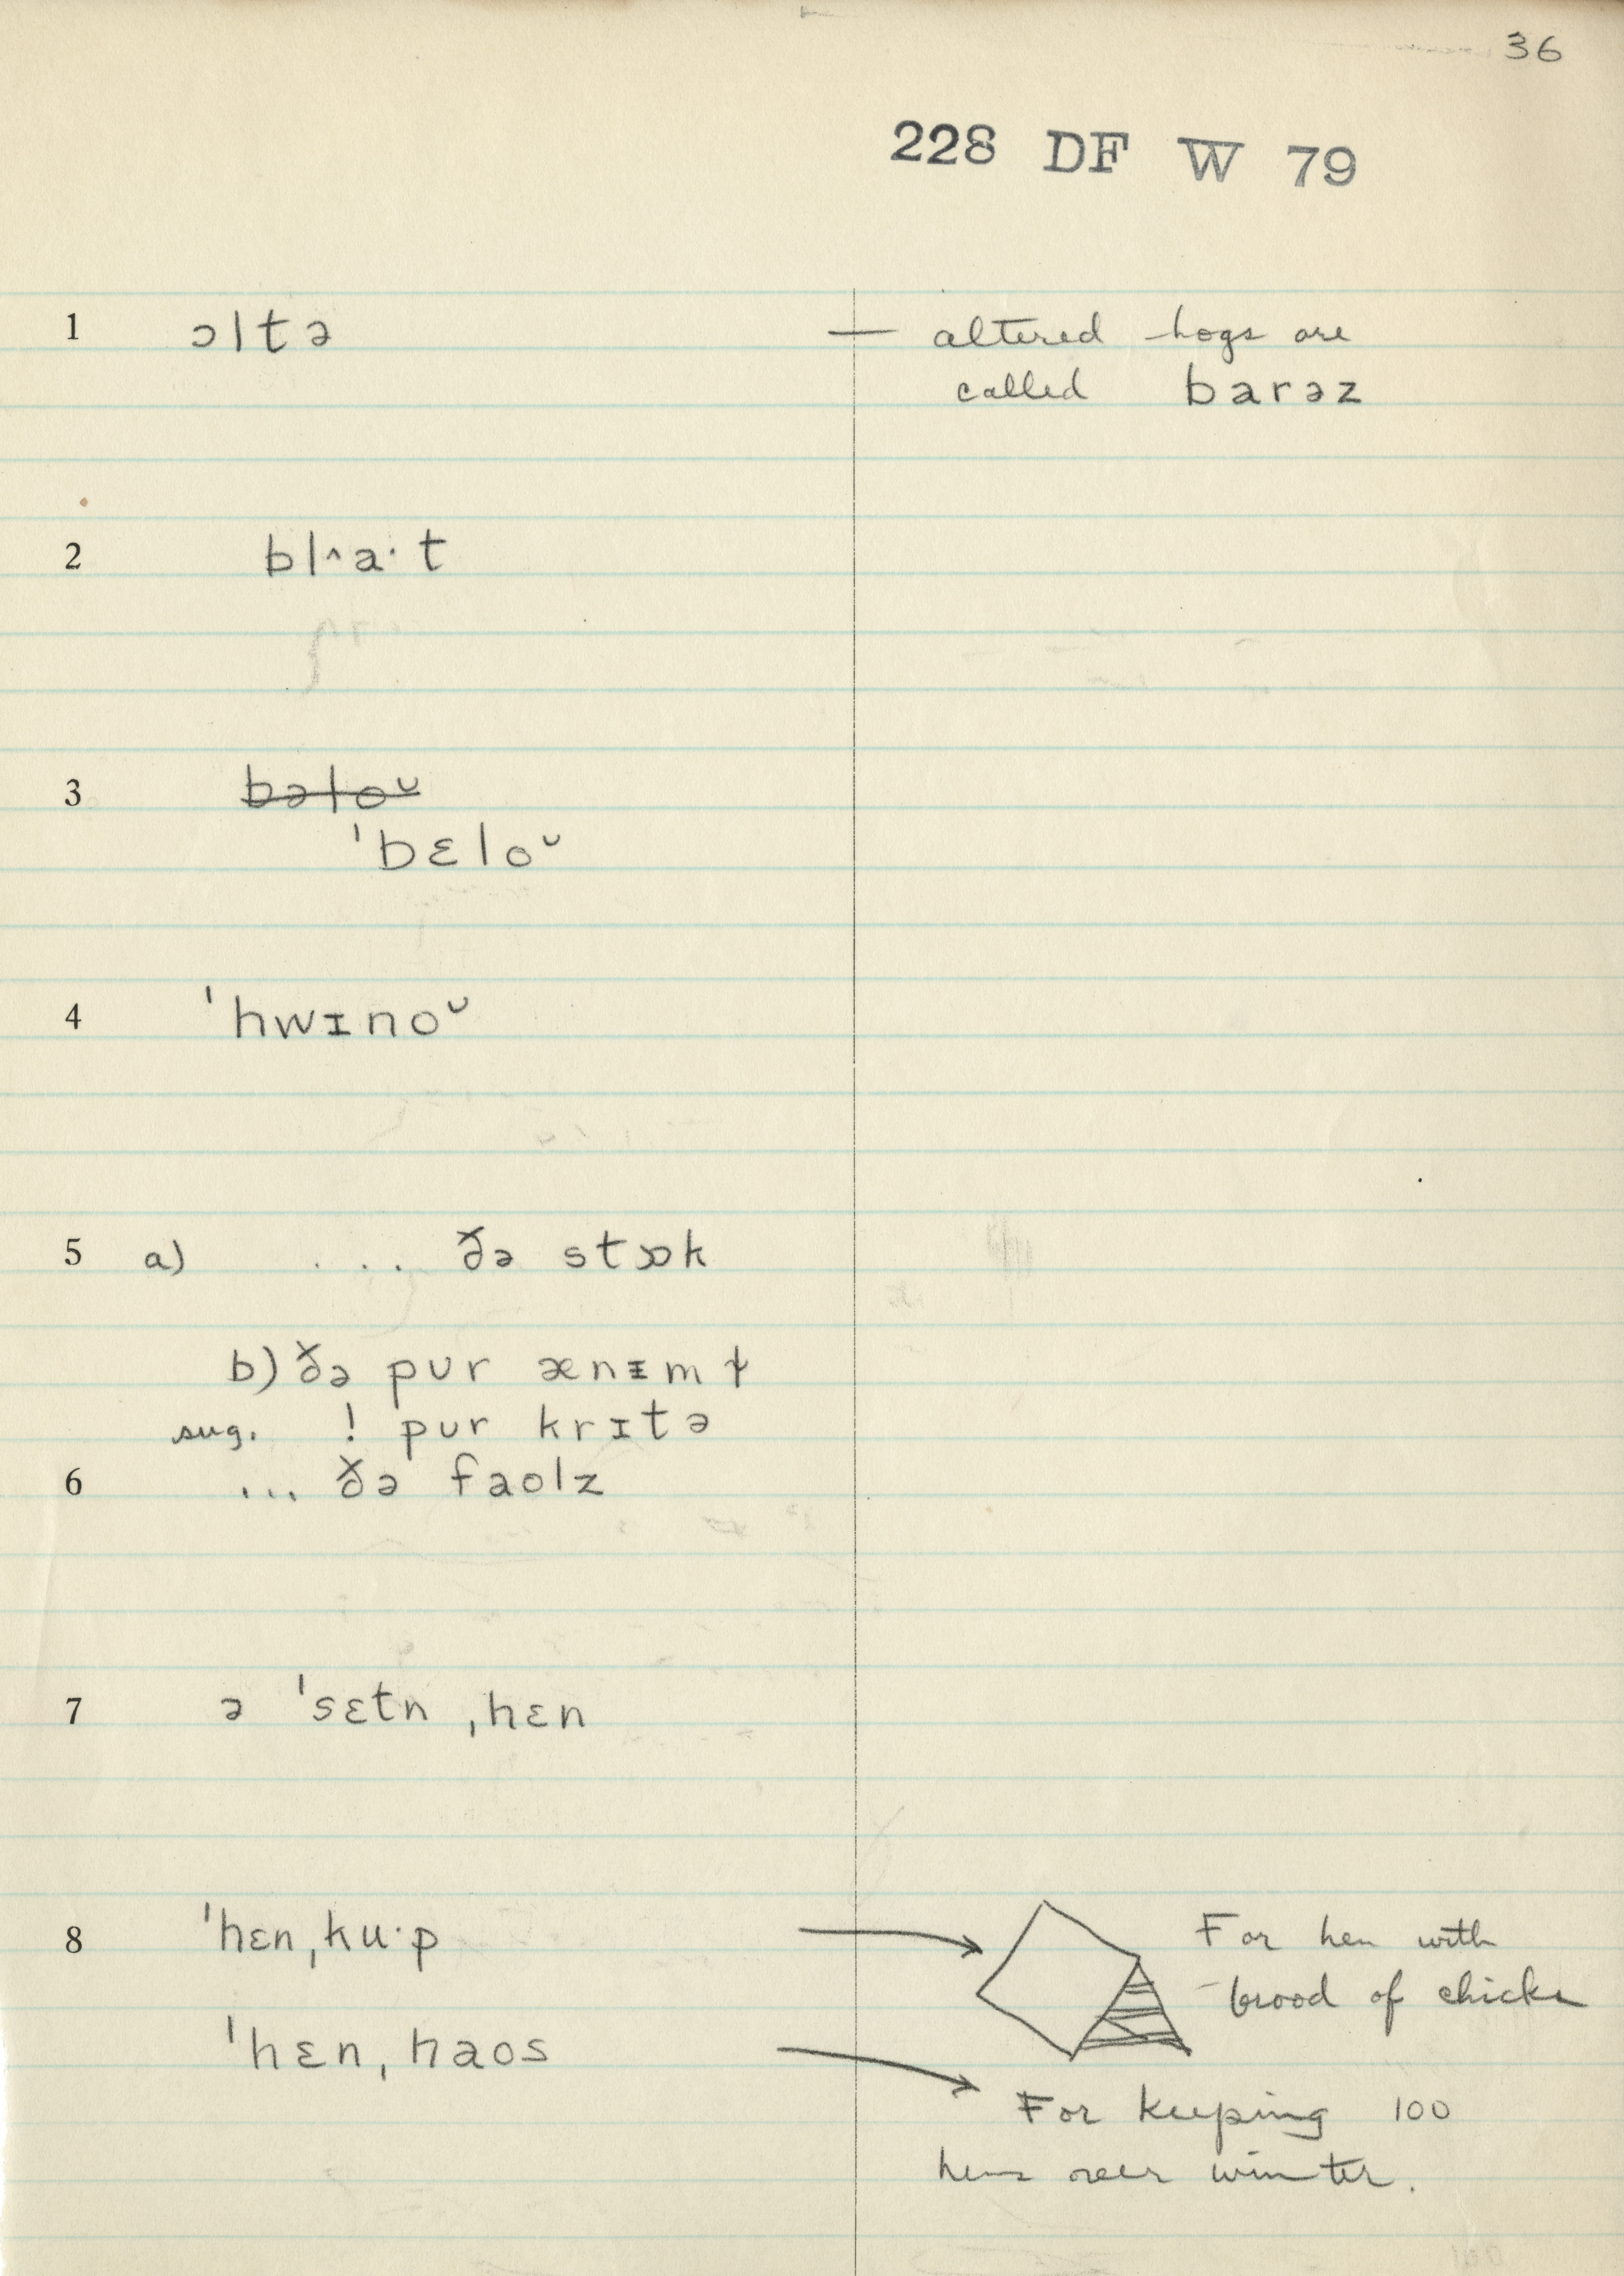 36
228 DF W 79
1 ɔltə — altered hogs are
called barəz
2 bl^a·t
3 bəloᴗ
ˈbɛloᴗ
4 ˈhwɪnoᴗ
5 a) ... ðə stɒk
b) ðə pur ænɪmɫ
sug. ! pur krɪtə
6 ... ðə faolz
7 ə ˈsɛtn ˌhɛn
8 ˈhɛnˌku·p → For hen with
brood of chicks
ˈhɛnˌhaos →
For keeping 100
hens over winter.